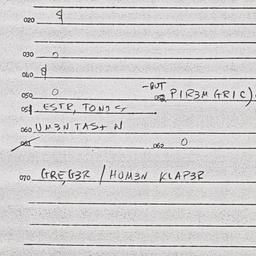 020
030
040
050 O -BUT
052 PIR3M GRIC)
051 ESTR, TON35
060 UM3N TAST N
061 062 O
070 GREG3R / HUM3N KLAP3R